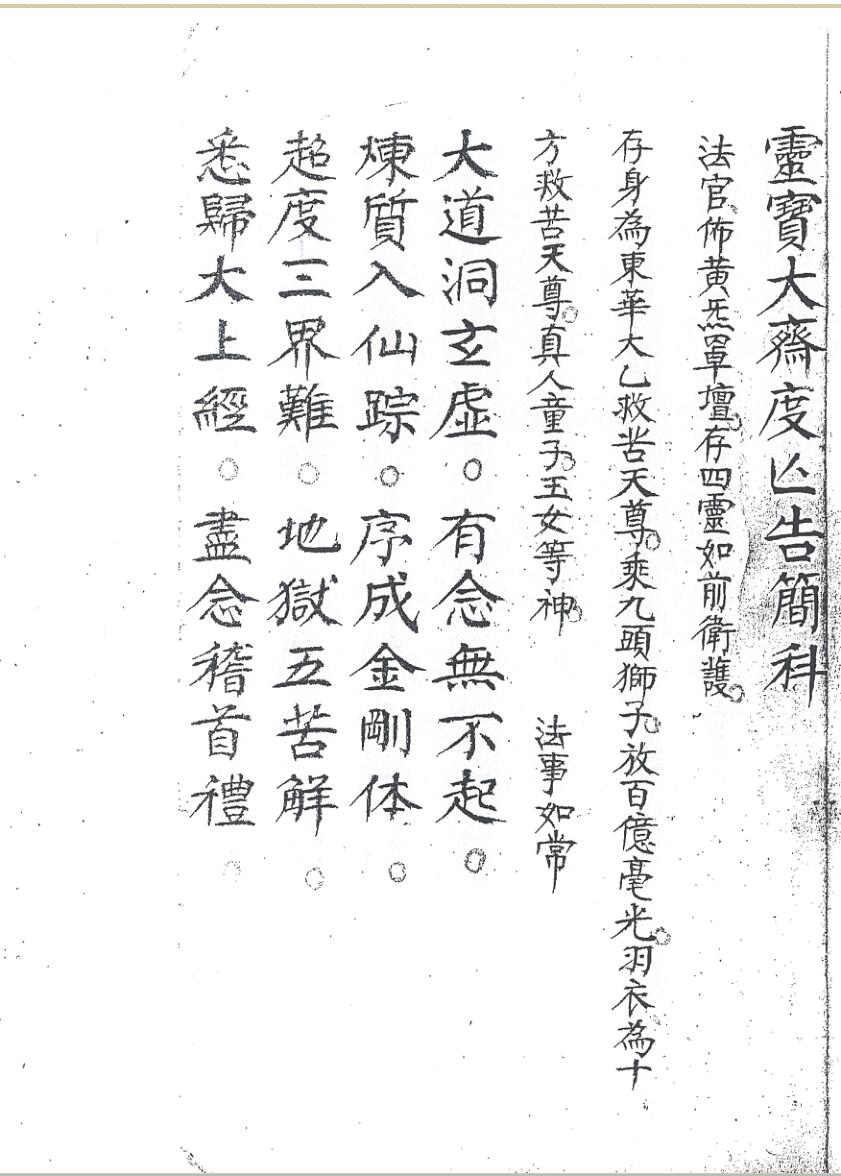 靈寶大齋度亾告簡科
法官佈黄炁罩壇。存四靈如前衛護。
存身為東華大乙救苦天尊。乘九頭獅子。放百億毫光。羽衣為十
方救苦天尊。真人童子。玉女等神。 法事如常
大道洞玄虛。有念無不起。
煉質入仙踪。序成金剛体。
超度三界難。地獄五苦解。
悉歸大上經。盡念稽首禮。